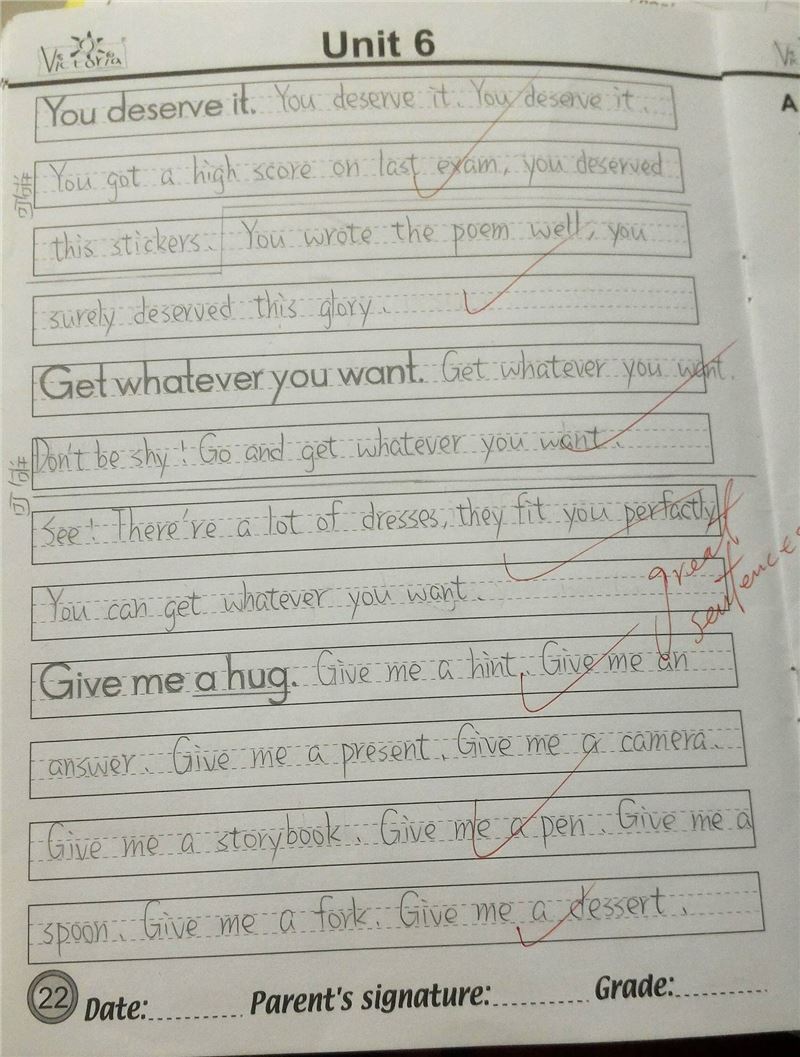 Victoria
Unit 6
You deserve it. You deserve it. You deserve it.
You got a high score on last exam, you deserved
this stickers. You wrote the poem well, you
surely deserved this glory.
Get whatever you want. Get whatever you want.
Don't be shy! Go and get whatever you want.
See! There're a lot of dresses, they fit you perfactly
You can get whatever you want.
great
sentences
Give me a hug. Give me a hint. Give me an
answer. Give me a present. Give me a camera.
Give me a storybook. Give me a pen. Give me a
spoon. Give me a fork. Give me a dessert.
22 Date: Parent's signature: Grade:
A